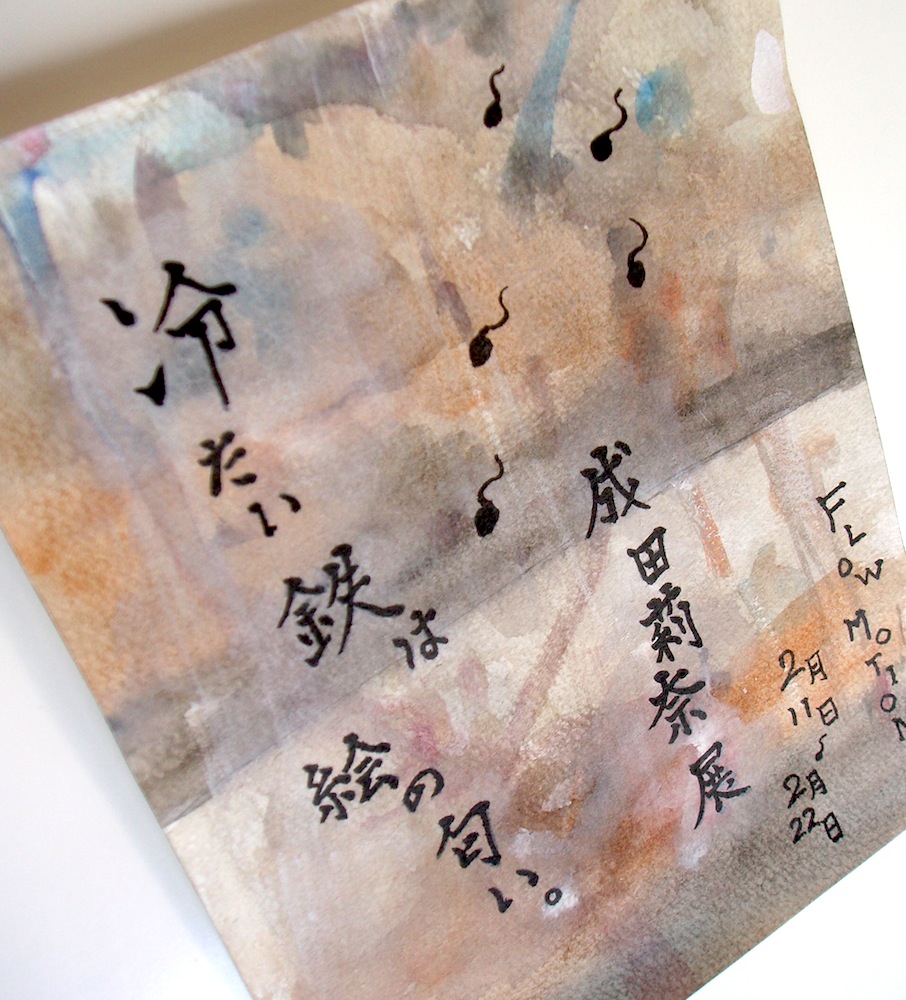 冷たい
鉄は
絵の匂い。
成田莉奈展
FLOW MOTION
2月11日〜2月22日